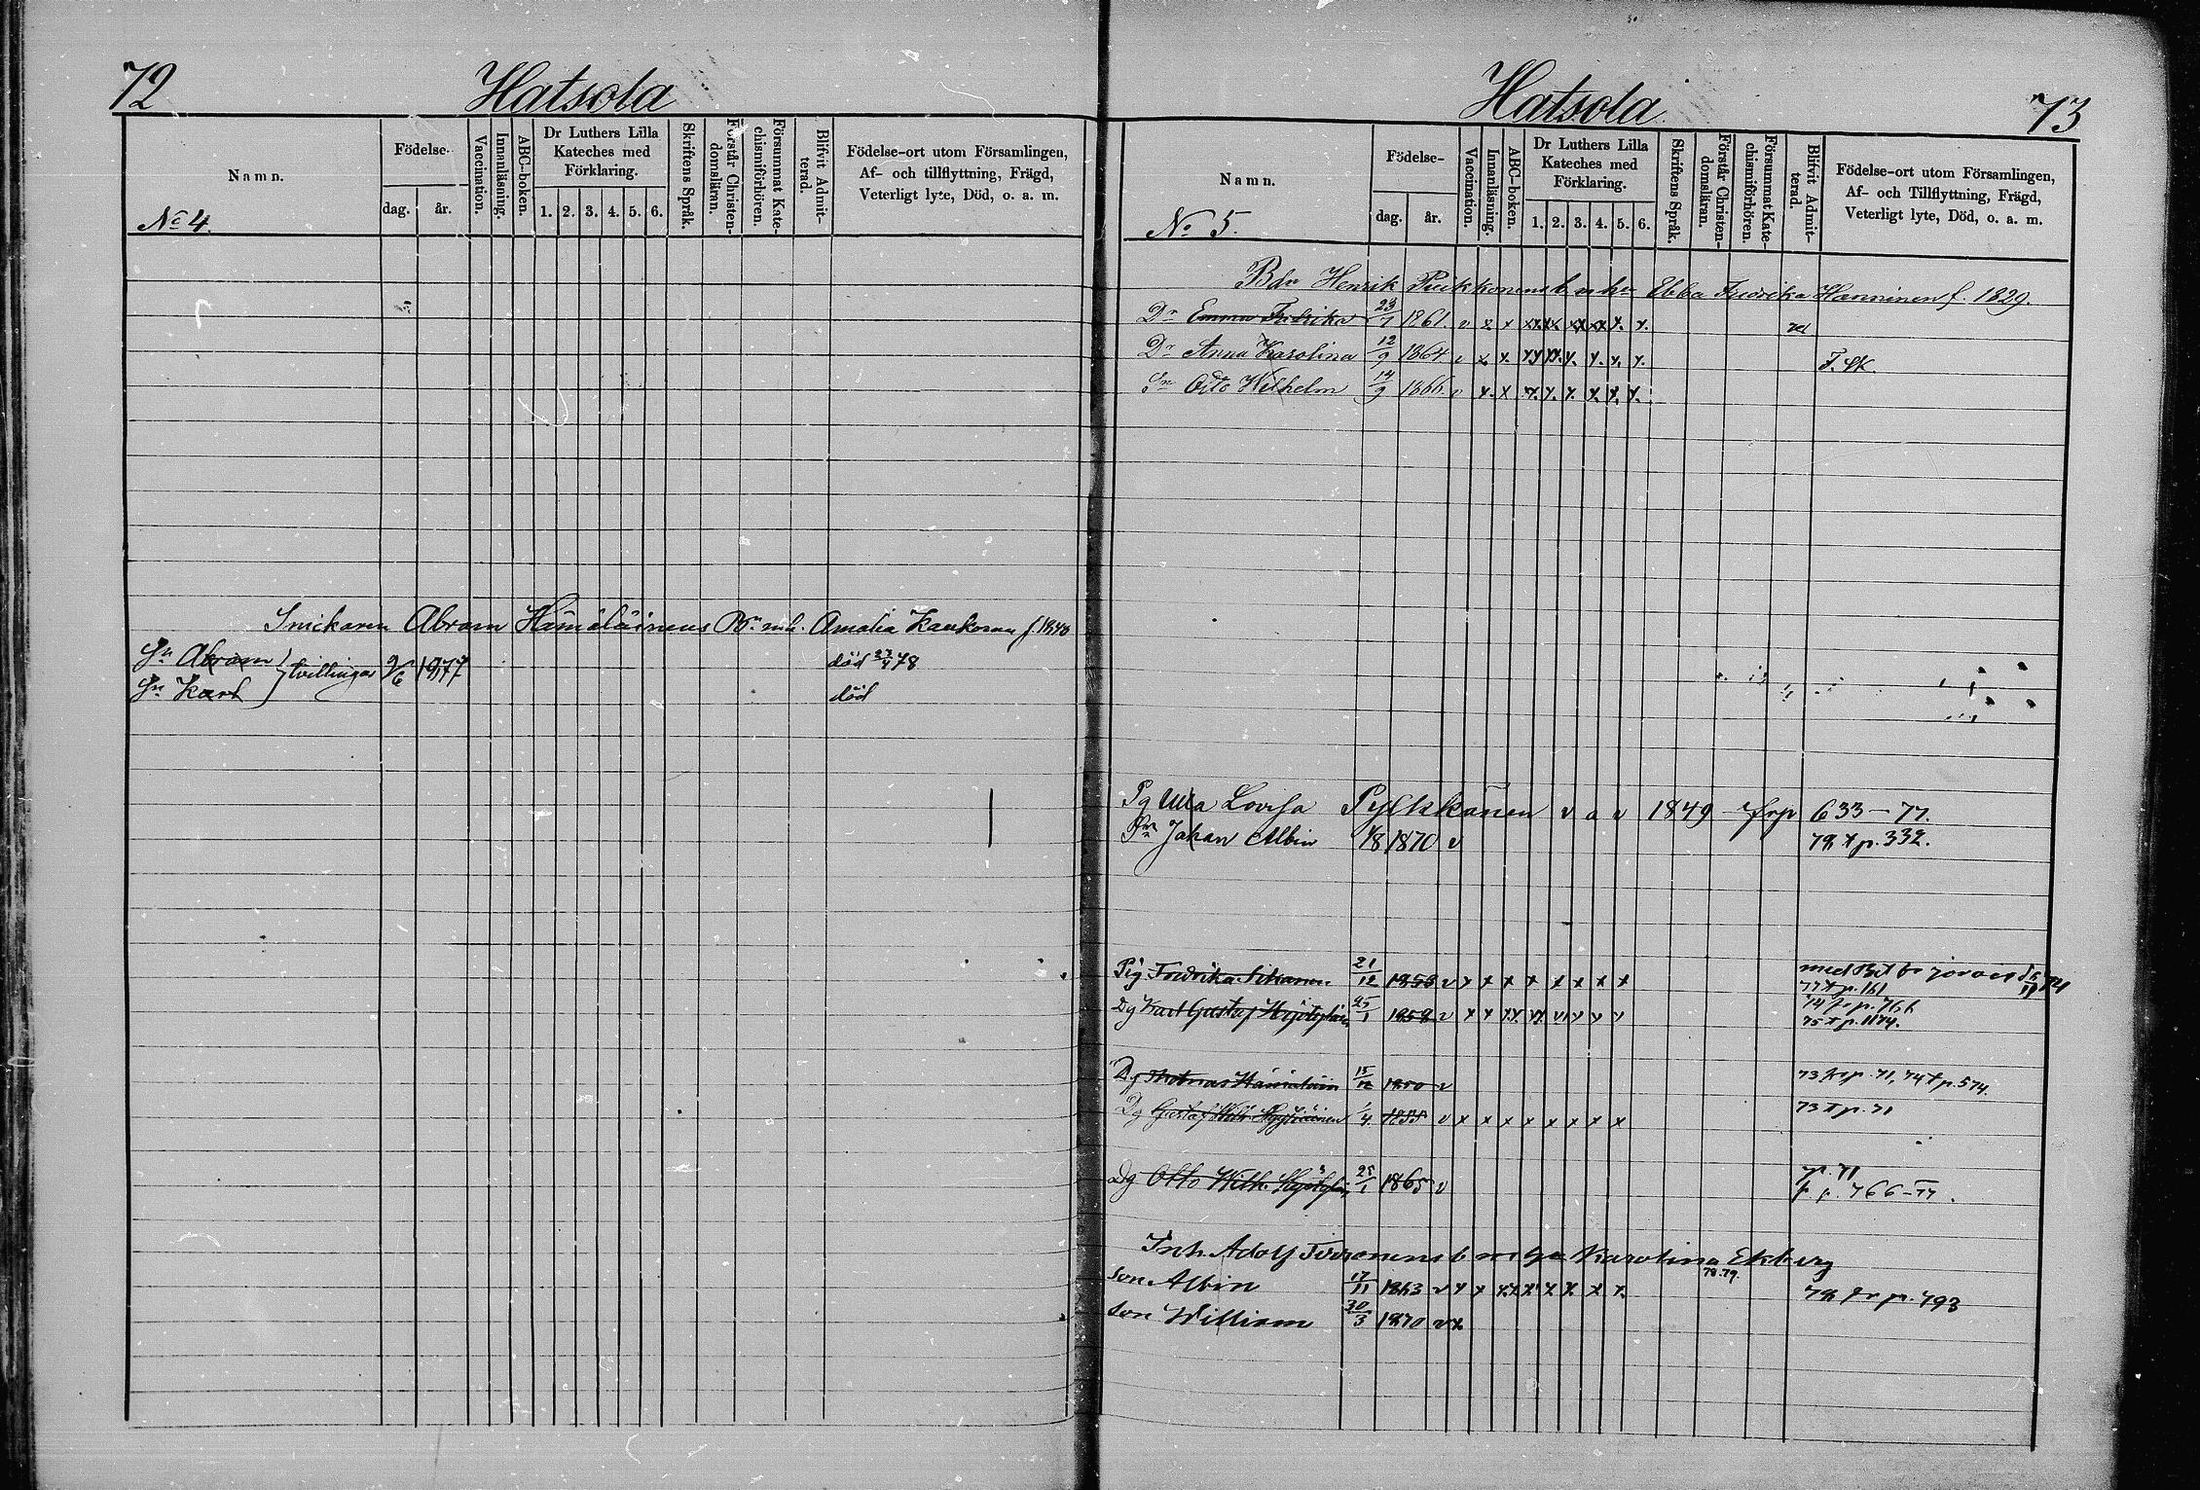 72
Hatsola
Namn.
Födelse-
dag.
år.
Vaccination.
Innanläsning.
ABC-boken.
Dr Luthers Lilla
Kateches med
Förklaring.
1. 2. 3. 4. 5. 6.
Skriftens Språk.
Förstår Christen-
domsläran.
Försummat Kate-
chismiförhören.
Blifvit Admit-
terad.
Födelse-ort utom Församlingen,
Af- och tillflyttning, Frägd,
Veterligt lyte, Död, o. a. m.
No 4
Snickaren Abram Hämäläinens Bn m h. Amalia Kaukonen f. 1840
Sn Abram } tvillingar 9/6 1877 död 23/4 78
Sn Karl död
Hatsola
73
Namn.
Födelse-
dag.
år.
Vaccination.
Innanläsning.
ABC-boken.
Dr Luthers Lilla
Kateches med
Förklaring.
1. 2. 3. 4. 5. 6.
Skriftens Språk.
Förstår Christen-
domsläran.
Försummat Kate-
chismiförhören.
Blifvit Admit-
terad.
Födelse-ort utom Församlingen,
Af- och Tillflyttning, Frägd,
Veterligt lyte, Död, o. a. m.
No 5.
Bdn Henrik b m hu Ebba Fredrika Hänninen f. 1829.
Dr Emma Fredrika 23/7 1861. v x x xx xx xx xx x. x.
Dr Anna Karolina 12/9 1864 v x x. xx xx. x. x. x. x.
Sn Otto Wilhelm 14/9 1866. v x. x x. x. x. x. x. x.
Pg Ulla Lovisa Pylkkänen v a v 1849 frp 633-77.
Sn Johan Albin 1/8 1870 v 79 t p. 332.
Pig Fredrika 21/12 1858 v x x x x x x x x
77 t p. 161
Dg Karl Gustaf 25/1 1858 v x x xx xx
74 fr p. 766
75 t p. 1174.
Dg 15/12 1850 v 73 fr p. 71, 74 t p. 574.
Dg Gustaf Wilh. /4 1855 v x x x x x x x x 73 t p. 71
Dg Otto Wilh. 25/1 1865 v p. 71
f p. 766-77.
Inh. Adolf b m Karolina Ekberg
78.79.
son Albin 17/11 1863 v x x xx x x x x x. 78 fr p. 793
son William 30/3 1870 v x